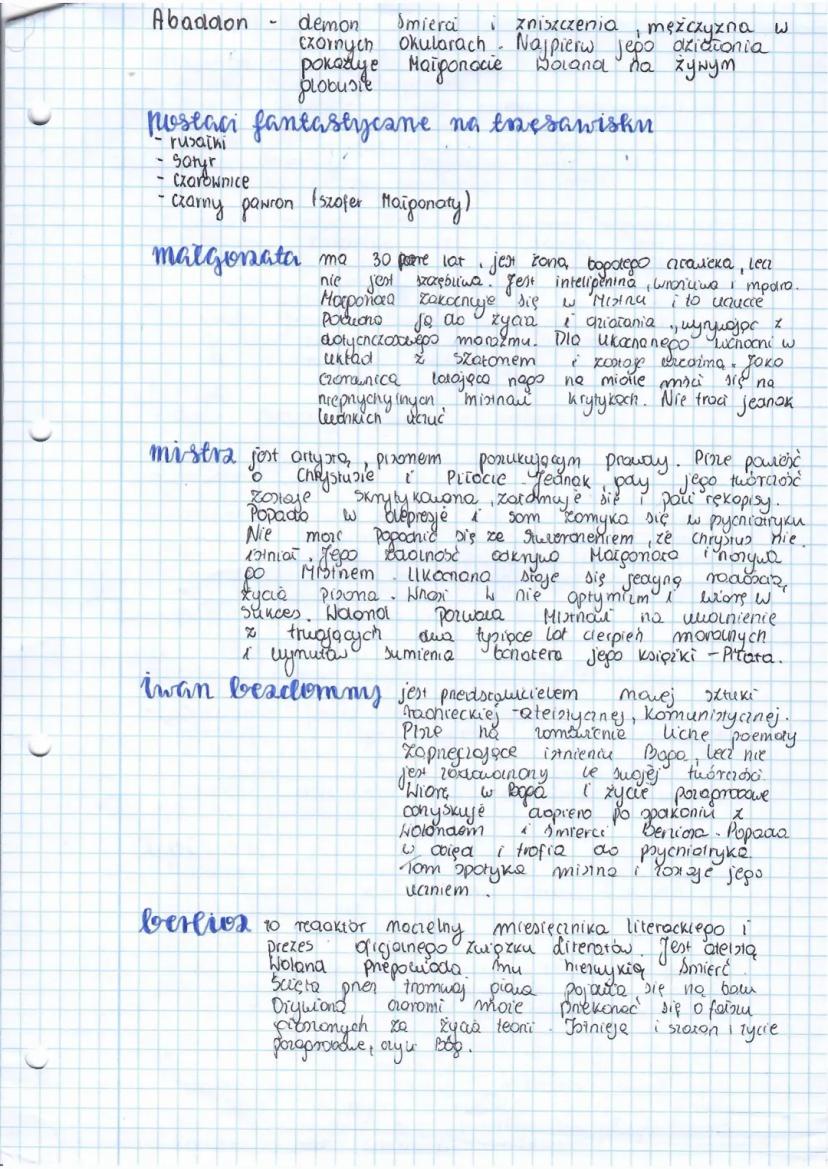 Abaddon - demon śmierci i zniszczenia, mężczyzna w
czarnych okularach. Najpierw jego działania
pokazuje Małgorzacie Woland na żywym
globusie
postaci fantastyczne na trzęsawisku
- rusałki
- satyr
- czarownice
- czarny gawron (szofer Małgorzaty)
małgorzata ma 30 parę lat, jest żoną bogatego człowieka, lecz
nie jest szczęśliwa. Jest inteligentna, wrażliwa i mądra.
Małgorzata zakochuje się w Mistrzu i to uczucie
pobudza ją do życia i działania, wyrywając z
dotychczasowego marazmu. Dla ukochanego wchodzi w
układ z szatanem i zostaje wiedźmą. Jako
czarownica latająca nago na miotle mści się na
nieprzychylnych mistrzowi krytykach. Nie traci jednak
ludzkich uczuć
mistrz jest artystą, pisarzem poszukującym prawdy. Pisze powieść
o Chrystusie i Piłacie. Jednak, gdy jego twórczość
zostaje skrytykowana, załamuje się i pali rękopisy.
Popada w depresję i sam zamyka się w psychiatryku
Nie może pogodzić się ze stwierdzeniem, że Chrystus nie
istniał. Jego zdolność odkrywa Małgorzata i nazywa
go Mistrzem. Ukochana staje się jedyną radością
życia pisarza. Wnosi w nie optymizm i wiarę w
sukces. Woland pozwala Mistrzowi na uwolnienie
z trwających dwa tysiące lat cierpień moralnych
i wyrzutów sumienia bohatera jego książki - Piłata.
iwan bezdomny jest przedstawicielem nowej sztuki
radzieckiej - ateistycznej, komunistycznej.
Pisze na zamówienie liche poematy
zaprzeczające istnieniu Boga, lecz nie
jest zadowolony ze swojej twórczości.
Wiarę w Boga i życie pozagrobowe
odzyskuje dopiero po spotkaniu z
Wolandem i śmierci Berlioza. Popada
w obłęd i trafia do psychiatryka.
Tam spotyka mistrza i zostaje jego
uczniem.
berlioz to redaktor naczelny miesięcznika literackiego i
prezes oficjalnego związku literatów. Jest ateistą
Woland przepowiada mu niezwykłą śmierć.
Ścięta przez tramwaj głowa pojawia się na balu
Ożywiona czarami może przekonać się o fałszu
głoszonych za życia teorii. Istnieją i szatan i życie
pozagrobowe, czyli Bóg.